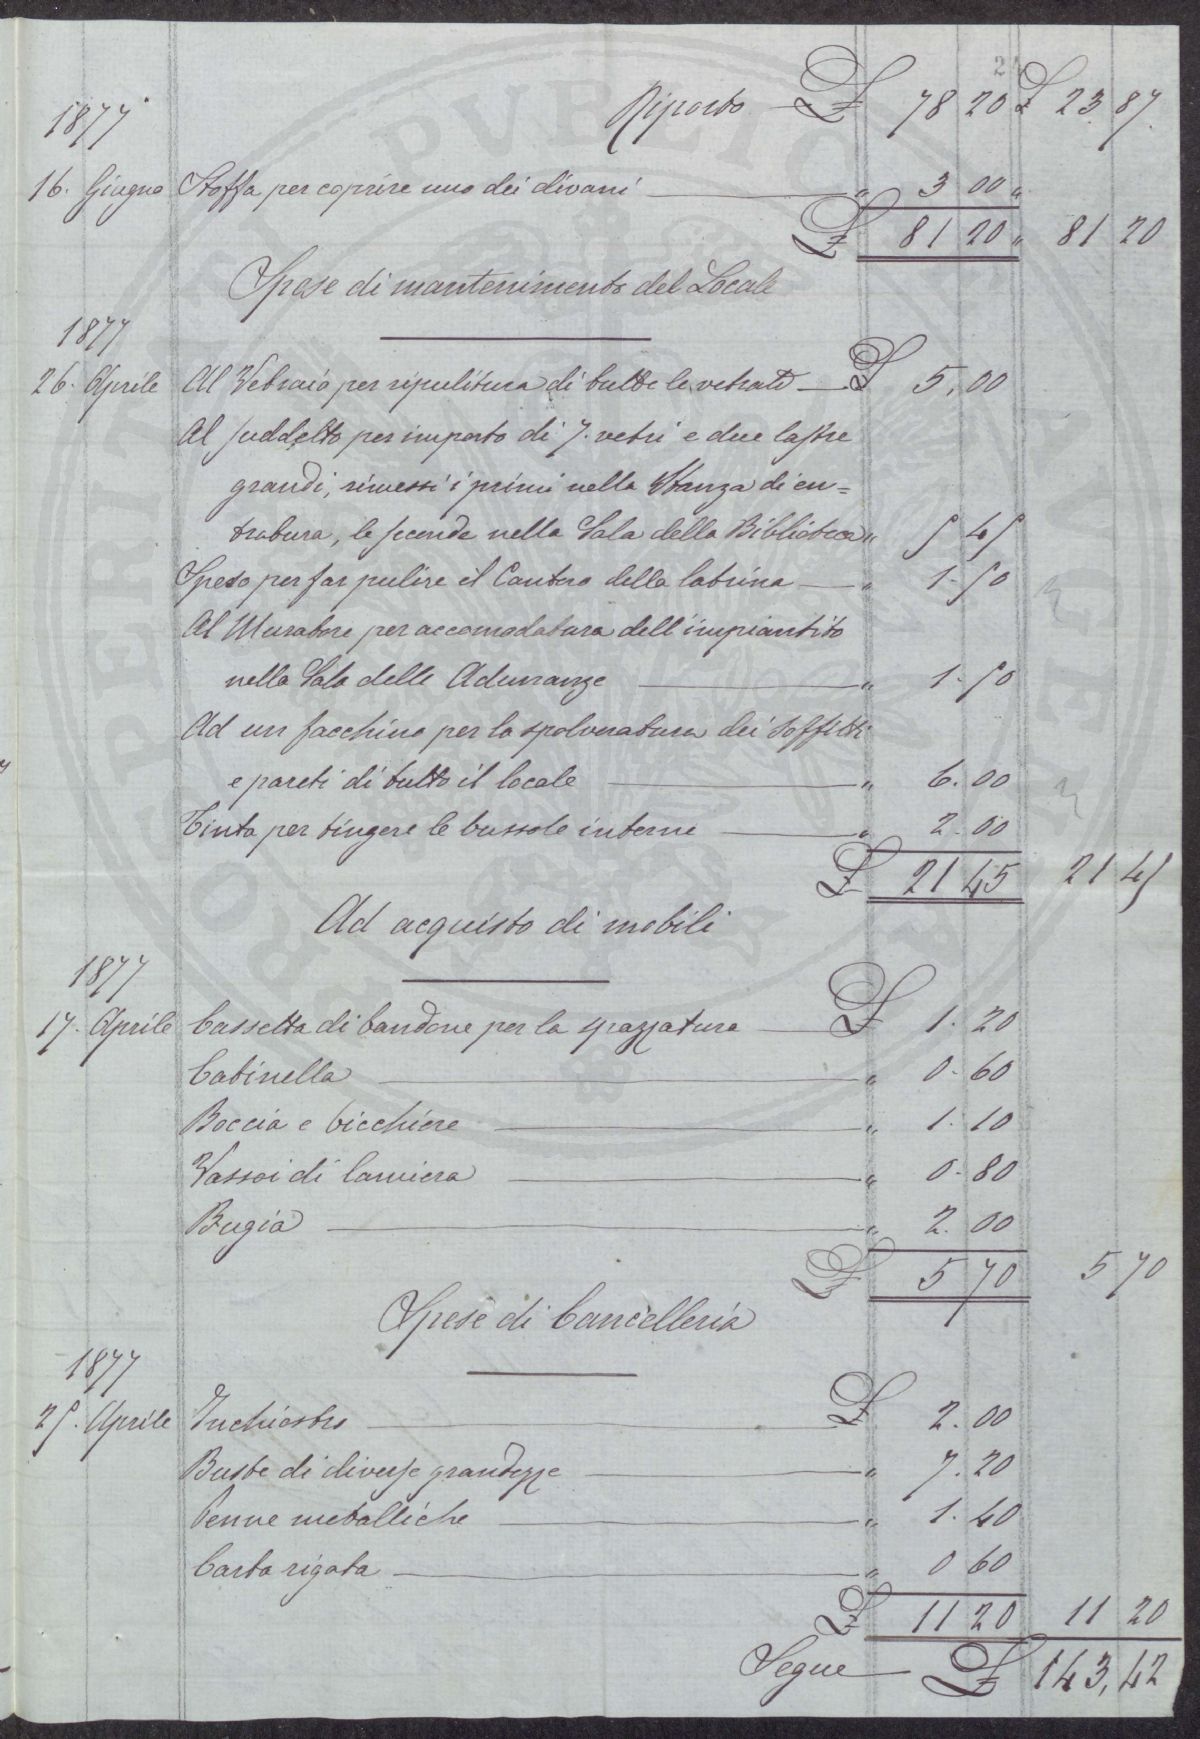 1877 Riporto £ 78 20 £ 23 87
16. Giugno Stoffa per coprire uno dei divani " 3 00 "
£ 81 20 " 81 20
Spese di mantenimento del Locale
1877
26. Aprile Al Vetraio per ripulitura di tutte le vetrate £ 5,00
Al suddetto per importo di 7. vetri e due lastre
grandi, rimessi i primi nella Stanza di en=
tratura, le seconde nella Sala della Biblioteca " 5 45
Speso per far pulire il Cantero della latrina " 1.50
Al Muratore per accomodatura dell'impiantito
nella Sala delle Adunanze " 1.50
Ad un facchino per la spolveratura dei soffitti
e pareti di tutto il locale " 6.00
Tinta per tingere le bussole interne " 2.00
£ 21 45 21 45
Ad acquisto di mobili
1877
17. Aprile Cassetta di bandone per la spazzatura £ 1.20
Catinella " 0.60
Boccia e bicchiere " 1.10
Vassoi di lamiera " 0.80
Bugia " 2.00
£ 5 70 5 70
Spese di Cancelleria
1877
25. Aprile Inchiostro £ 2.00
Buste di diverse grandezze " 7.20
Penne metalliche " 1.40
Carta rigata " 0 60
£ 11 20 11 20
Segue £ 143,42